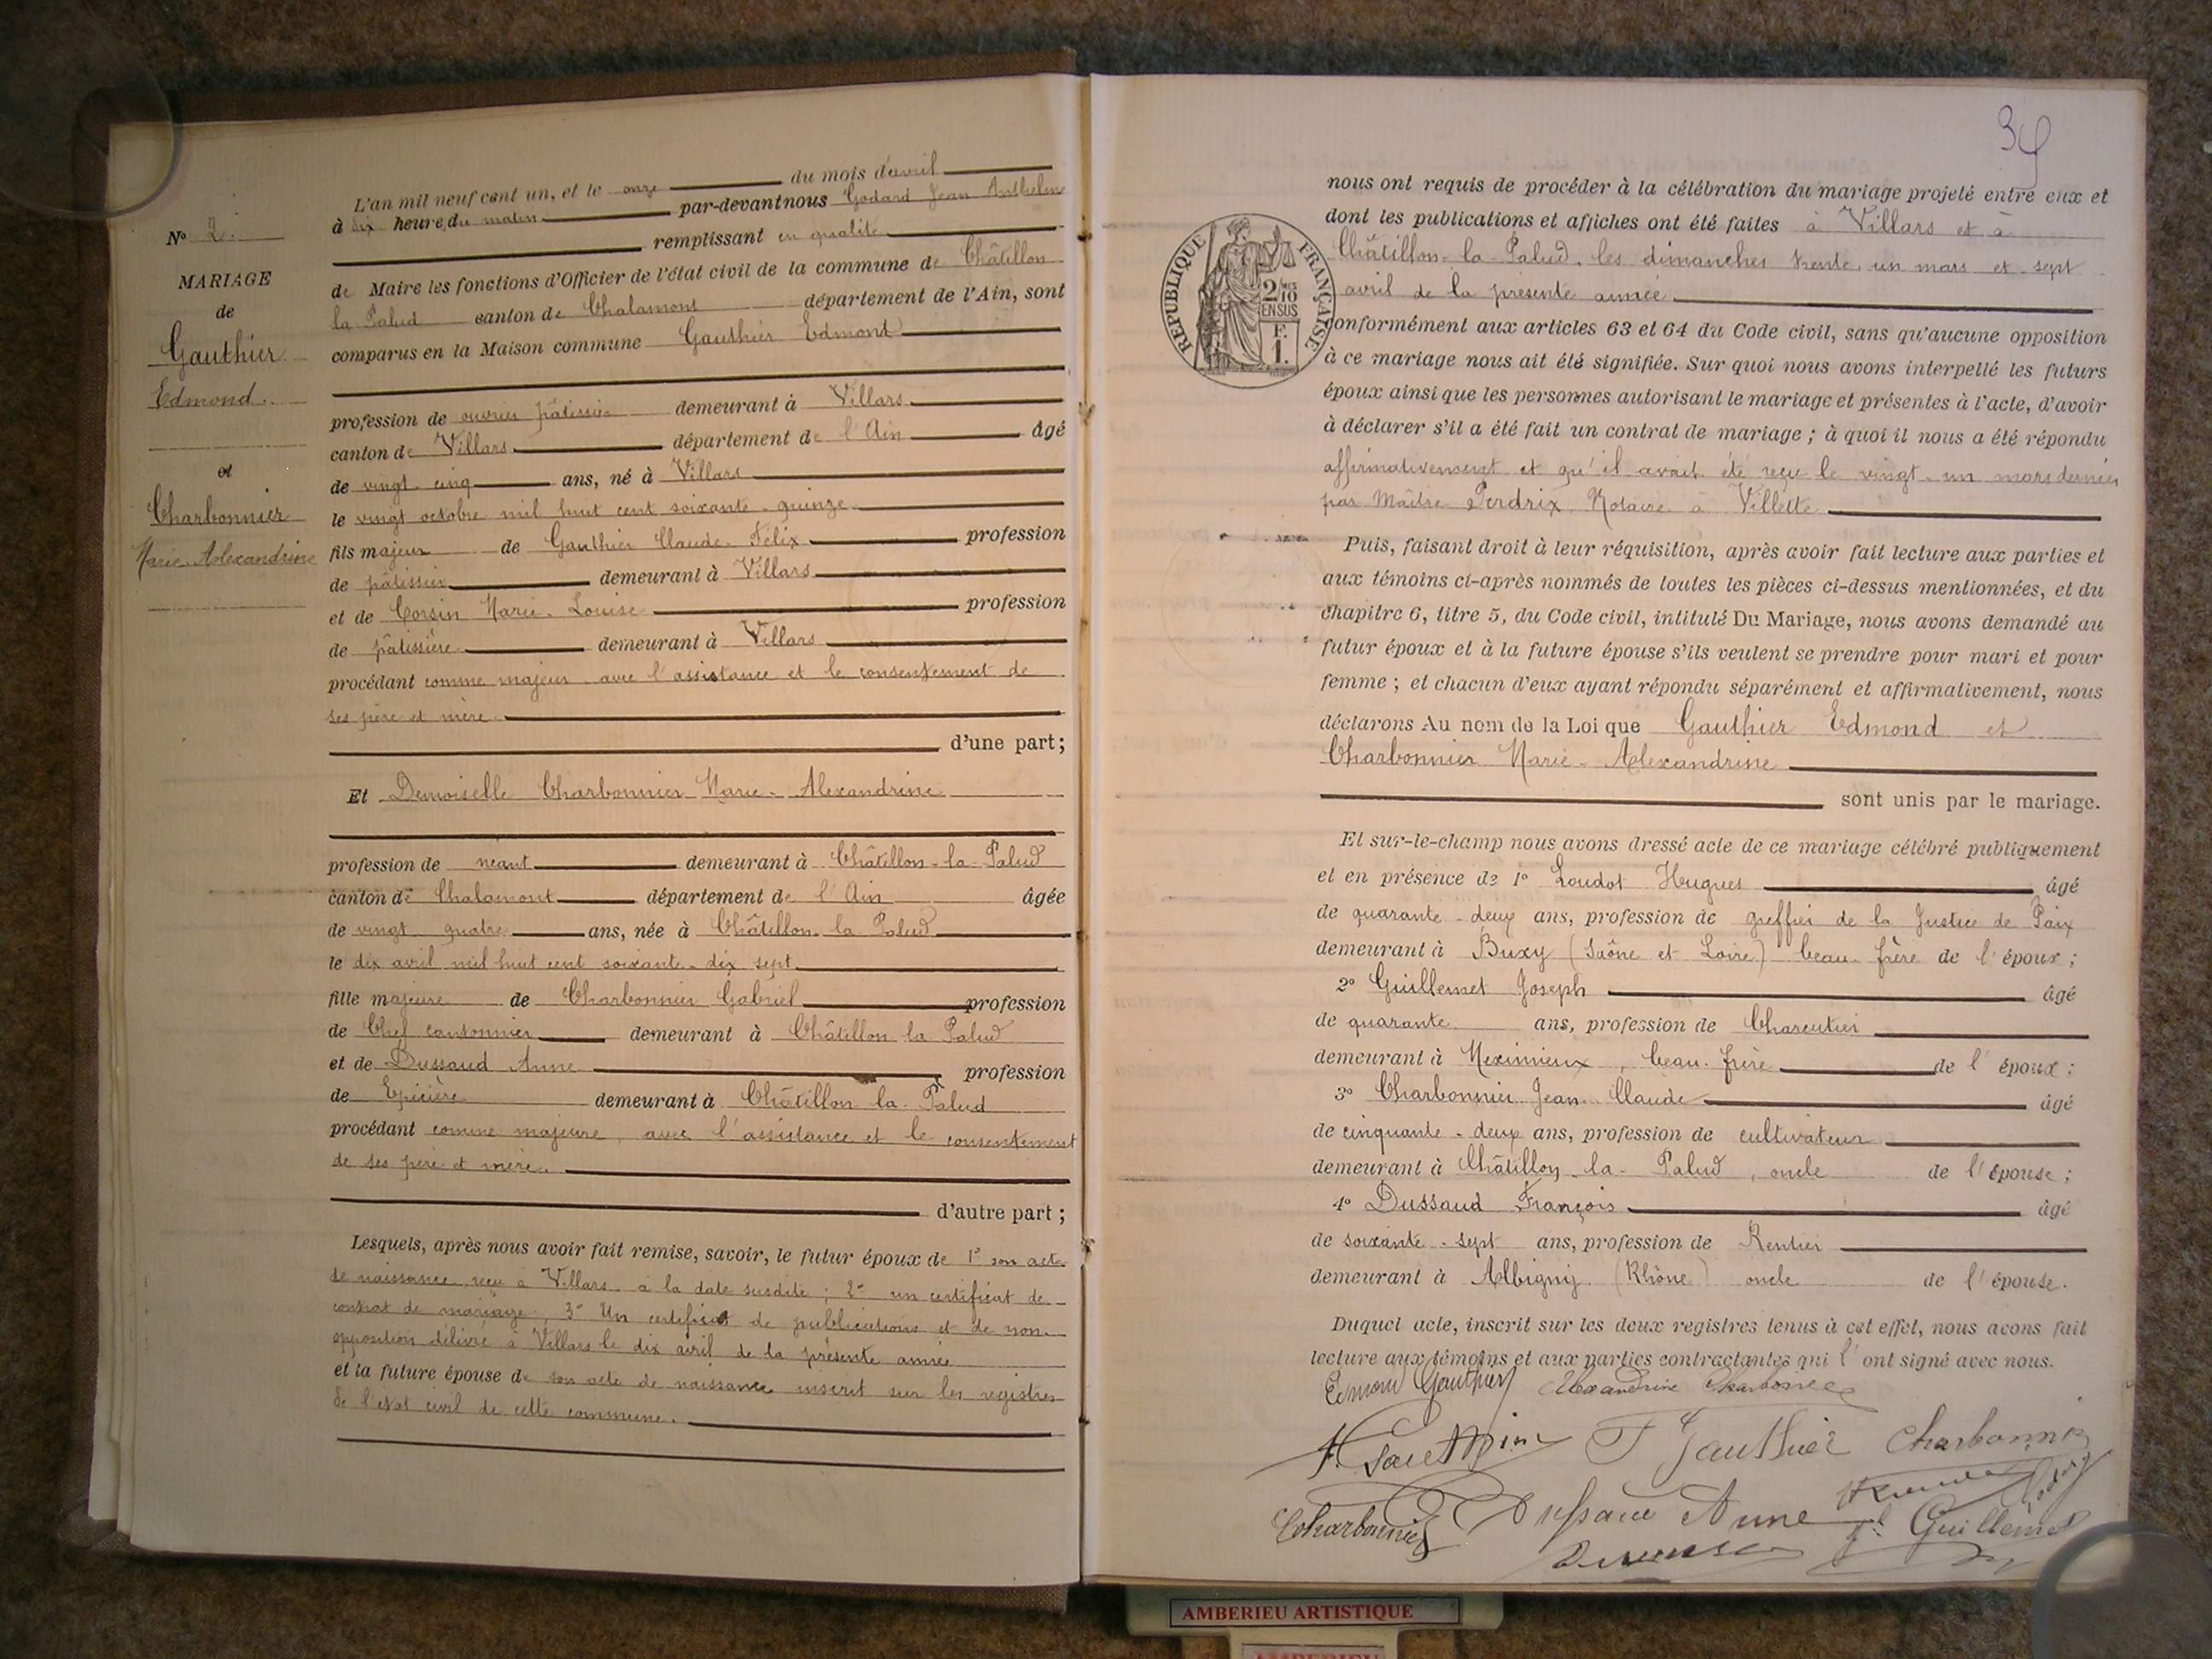 N° 2.
MARIAGE
de
Gauthier
Edmond.
et
Charbonnier
Marie-Alexandrine
L'an mil neuf cent un, et le onze du mois d'avril
à six heure du matin par-devant nous Godard Jean Anthelme
remplissant en qualité
de Maire les fonctions d'Officier de l'état civil de la commune de Châtillon
la Palud canton de Chalamont département de l'Ain, sont
comparus en la Maison commune Gauthier Edmond
profession de ouvrier pâtissier demeurant à Villars
canton de Villars département de l'Ain âgé
de vingt-cinq ans, né à Villars
le vingt octobre mil huit cent soixante-quinze
fils majeur de Gauthier Claude-Félix profession
de pâtissier demeurant à Villars
et de Corsin Marie-Louise profession
de pâtissière demeurant à Villars
procédant comme majeur avec l'assistance et le consentement de
ses père et mère
d'une part;
Et Demoiselle Charbonnier Marie-Alexandrine
profession de néant demeurant à Châtillon-la-Palud
canton de Chalamont département de l'Ain âgée
de vingt quatre ans, née à Châtillon-la-Palud
le dix avril mil huit cent soixante-dix sept
fille majeure de Charbonnier Gabriel profession
de Chef cantonnier demeurant à Châtillon la Palud
et de Dussaud Anne profession
de Epicière demeurant à Châtillon la-Palud
procédant comme majeure, avec l'assistance et le consentement
de ses père et mère.
d'autre part;
Lesquels, après nous avoir fait remise, savoir, le futur époux de 1° son acte
de naissance reçu à Villars, à la date susdite; 2° un certificat de
contrat de mariage; 3° Un certificat de publications et de non-
opposition délivré à Villars le dix avril de la présente année
et la future épouse de son acte de naissance inscrit sur les registres
de l'état civil de cette commune.
RÉPUBLIQUE FRANÇAISE
2/10
EN SUS
F.
1.
nous ont requis de procéder à la célébration du mariage projeté entre eux et
dont les publications et affiches ont été faites à Villars et à
Châtillon-la-Palud, les dimanches trente un mars et sept
avril de la présente année
conformément aux articles 63 et 64 du Code civil, sans qu'aucune opposition
à ce mariage nous ait été signifiée. Sur quoi nous avons interpellé les futurs
époux ainsi que les personnes autorisant le mariage et présentes à l'acte, d'avoir
à déclarer s'il a été fait un contrat de mariage; à quoi il nous a été répondu
affirmativement et qu'il avait été reçu le vingt-un mars dernier
par Maître Perdrix, Notaire à Villette
Puis, faisant droit à leur réquisition, après avoir fait lecture aux parties et
aux témoins ci-après nommés de toutes les pièces ci-dessus mentionnées, et du
chapitre 6, titre 5, du Code civil, intitulé Du Mariage, nous avons demandé au
futur époux et à la future épouse s'ils veulent se prendre pour mari et pour
femme; et chacun d'eux ayant répondu séparément et affirmativement, nous
déclarons Au nom de la Loi que Gauthier Edmond et
Charbonnier Marie-Alexandrine
sont unis par le mariage.
Et sur-le-champ nous avons dressé acte de ce mariage célébré publiquement
et en présence de 1° Loudot Hugues âgé
de quarante-deux ans, profession de greffier de la Justice de Paix
demeurant à Buxy (Saône et Loire) beau-frère de l'époux;
2° Guillemet Joseph âgé
de quarante ans, profession de Charcutier
demeurant à Meximieux, beau-frère de l'époux;
3° Charbonnier Jean-Claude âgé
de cinquante-deux ans, profession de cultivateur
demeurant à Châtillon-la-Palud, oncle de l'épouse;
4° Dussaud François âgé
de soixante-sept ans, profession de Rentier
demeurant à Albigny (Rhône) oncle de l'épouse.
Duquel acte, inscrit sur les deux registres tenus à cet effet, nous avons fait
lecture aux témoins et aux parties contractantes qui l'ont signé avec nous.
Edmond Gauthier Alexandrine Charbonnier
F Gauthier Charbonnier
Charbonnier Dussaud Anne Guillemet
AMBERIEU ARTISTIQUE
AMBERIEU